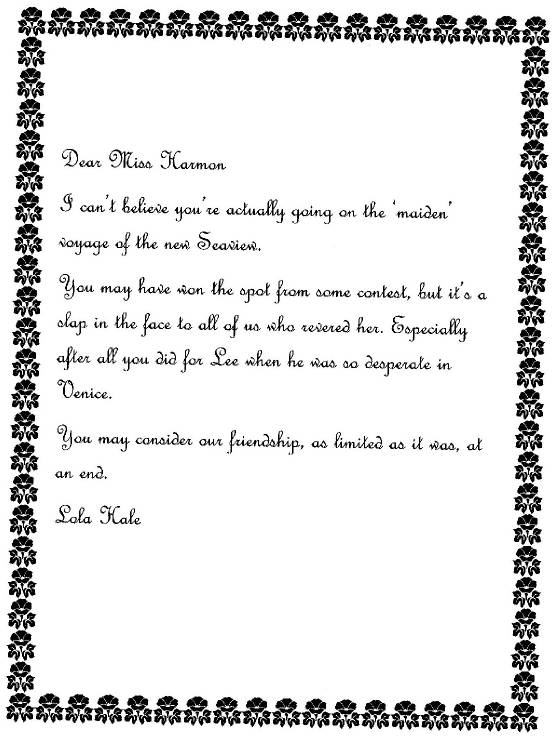 Dear Miss Harmon
I can't believe you're actually going on the 'maiden'
voyage of the new Seaview.
You may have won the spot from some contest, but it's a
slap in the face to all of us who revered her. Especially
after all you did for Lee when he was so desperate in
Venice.
You may consider our friendship, as limited as it was, at
an end.
Lola Hale